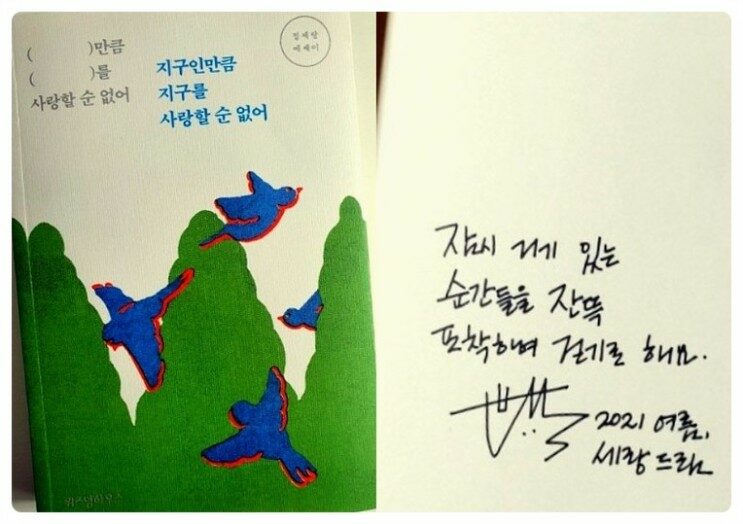 (      )만큼
(      )를
사랑할 순 없어
지구인만큼
지구를
사랑할 순 없어
정세랑
에세이
위즈덤하우스
잠시 거기 있는
순간들을 잔뜩
포착하며 걷기로 해요.
2021 여름,
세랑 드림